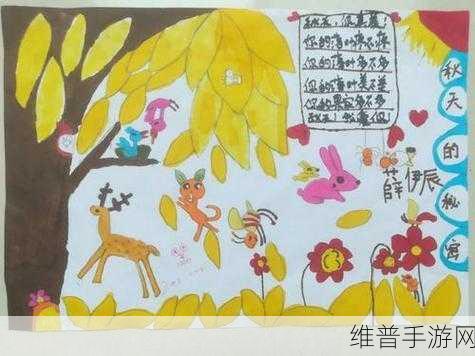 秋天，你真美！
你的落叶疼不疼
你的落叶多不多
你的落叶美不美
你的果实多不多
秋天！我爱你！
秋天的秘密
薛伊辰
维普手游网